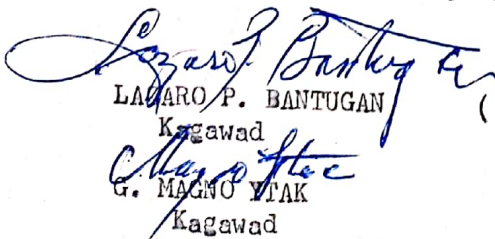 Lazaro P. Bantugan
LAZARO P. BANTUGAN
Kagawad
Magno Ytac
G. MAGNO YTAK
Kagawad